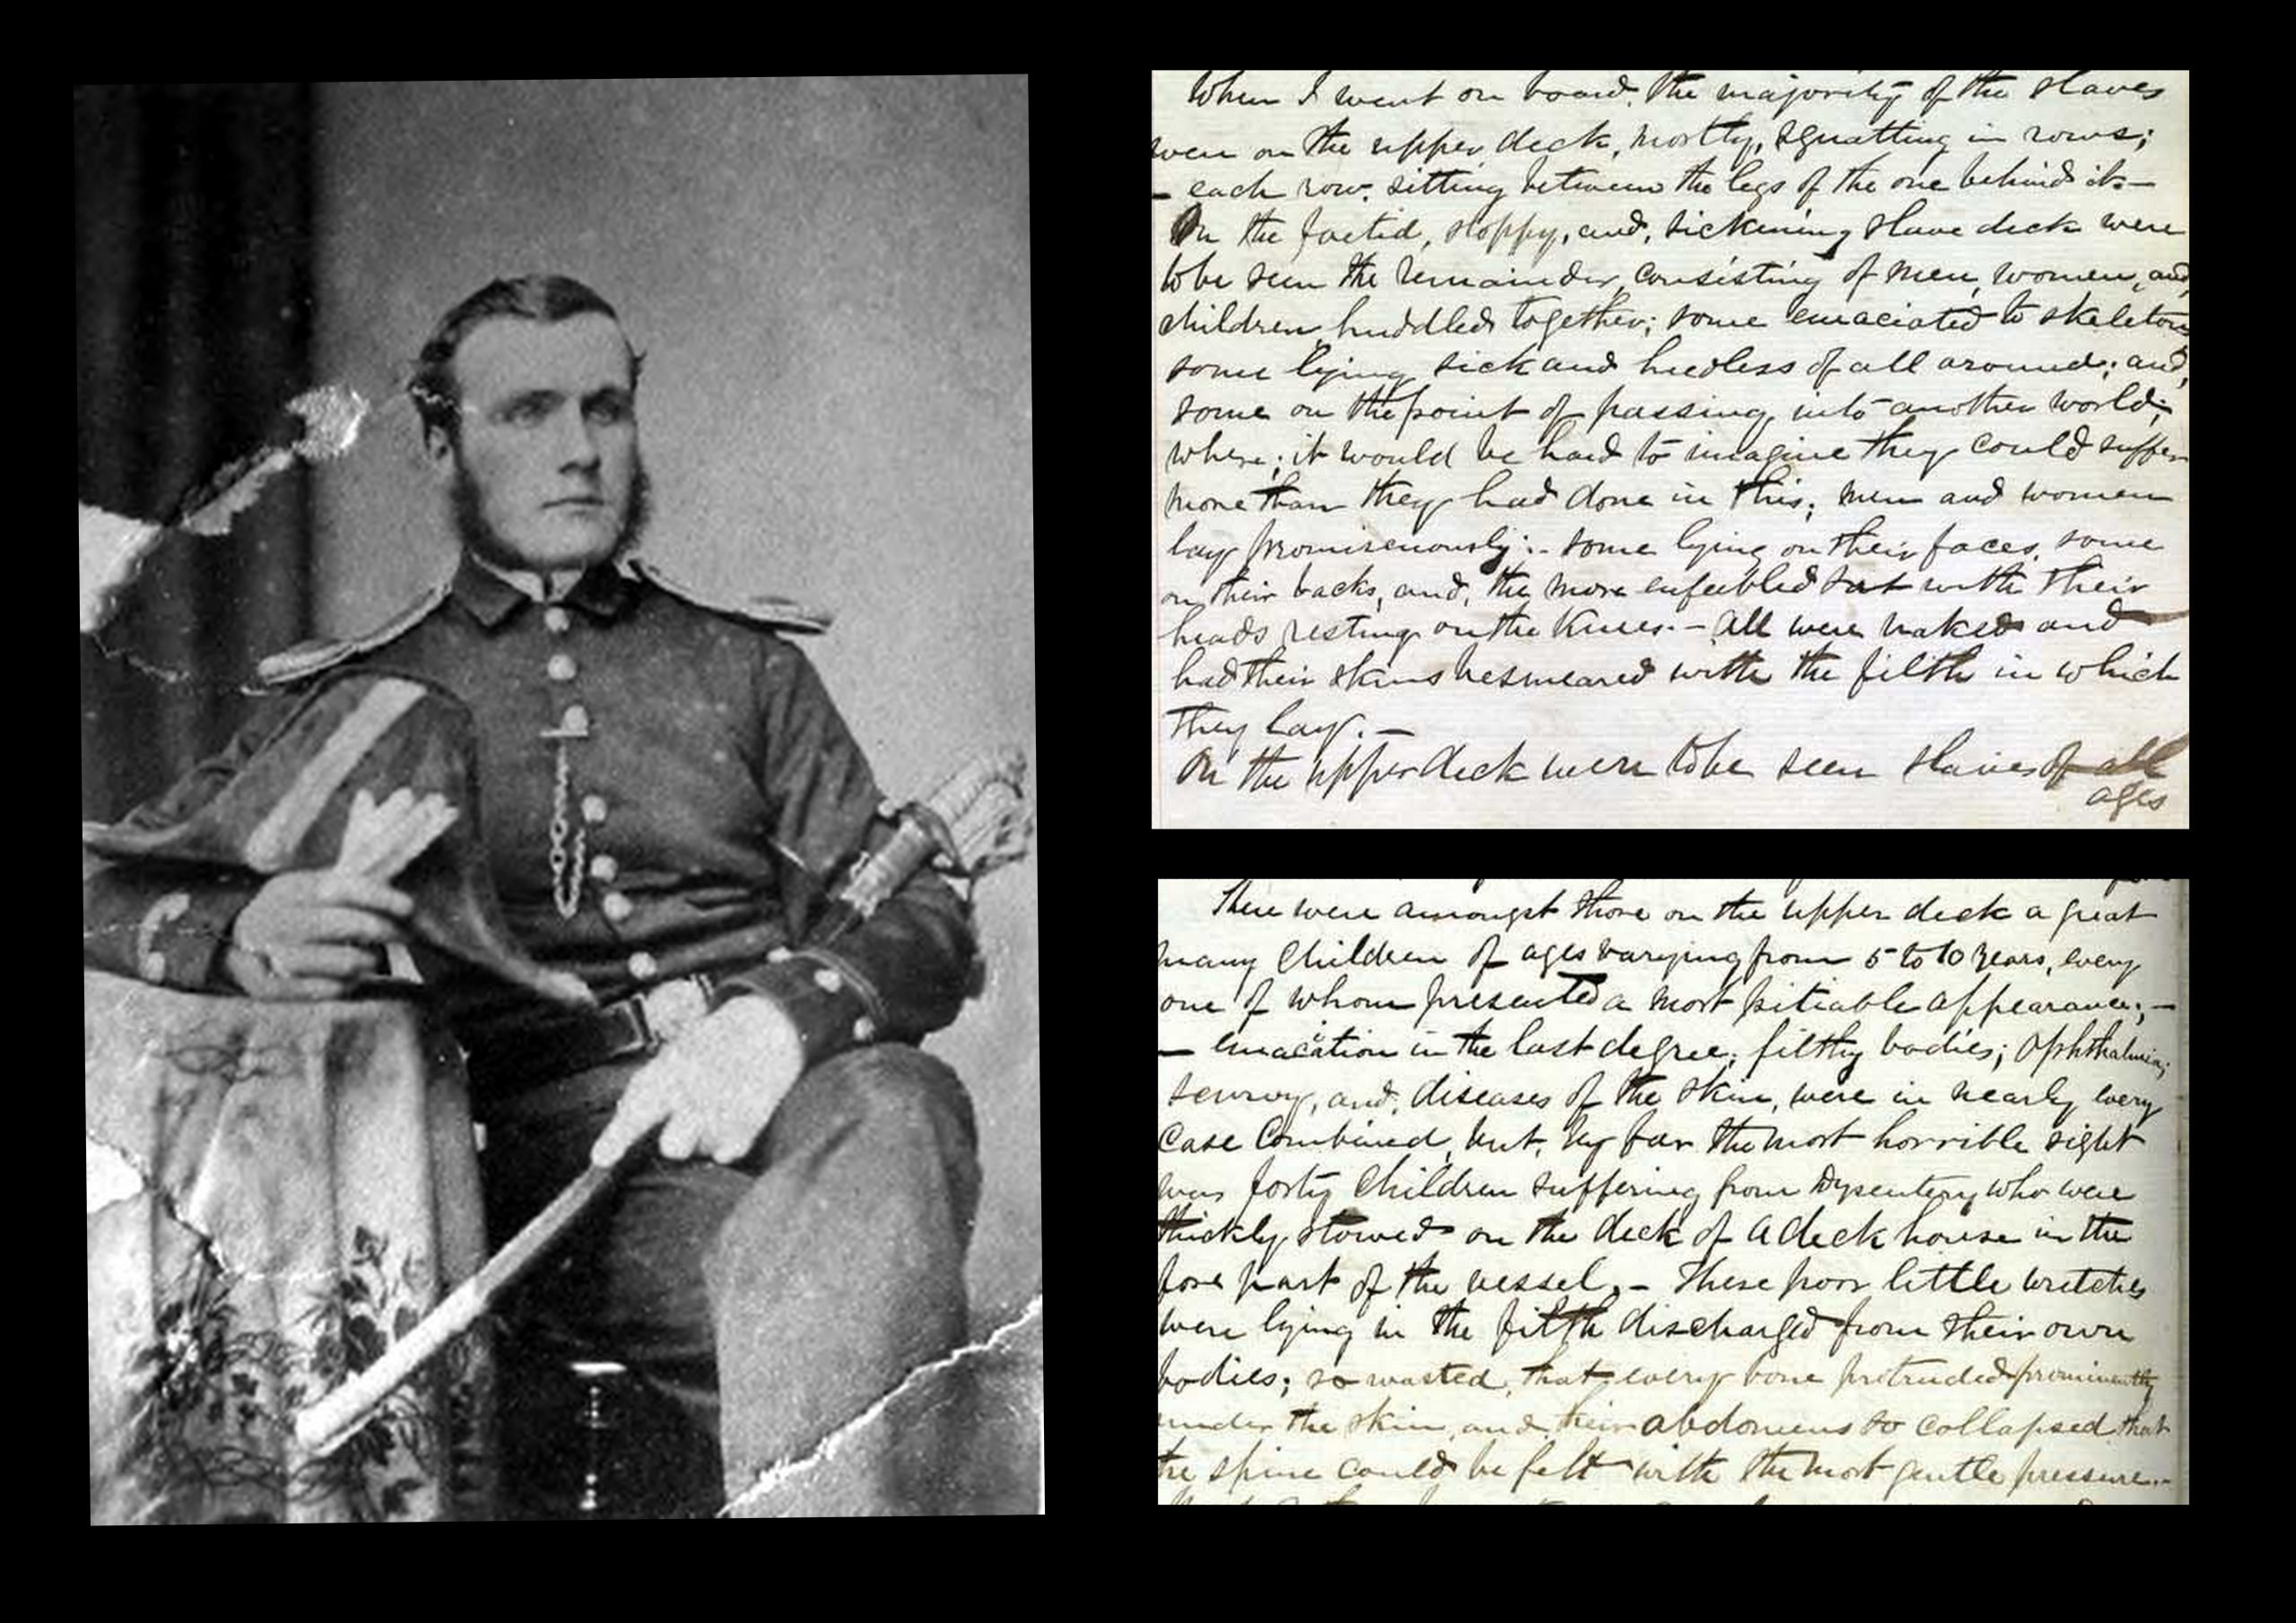 When I went on board, the majority of the slaves
were on the upper deck, mostly, squatting in rows;
- each row, sitting between the legs of the one behind it -
On the foetid, sloppy, and, sickening slave deck were
to be seen the remainder, consisting of men, women, and,
children, huddled together; some emaciated to skeletons
some lying sick and heedless of all around; and,
some on the point of passing into another world;
where; it would be hard to imagine they could suffer
more than they had done in this; men and women
lay promiscuously:- some lying on their faces, some
on their backs, and, the more enfeebled sat with their
heads resting on the knees. - All were naked and
had their skins besmeared with the filth in which
they lay. -
On the upper deck were to be seen slaves of all
ages
There were amongst those on the upper deck a great
many children of ages varying from 5 to 10 years, every
one of whom presented a most pitiable appearance; -
- emaciation in the last degree; filthy bodies; Ophthalmia;
scurvy, and, diseases of the skin, were in nearly every
case combined, but, by far the most horrible sight
was forty children suffering from Dysentery who were
thickly stowed on the deck of a deck house in the
fore part of the vessel. - These poor little wretches
were lying in the filth discharged from their own
bodies; so wasted, that, every bone protruded prominently
under the skin, and, their abdomens so collapsed that
the spine could be felt with the most gentle pressure. -